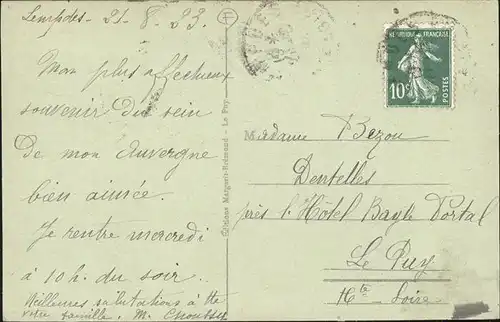 Lempdes - 21 - 8 - 23.
Mon plus affectueux
souvenir du sein
de mon Auvergne
bien aimée.
Je rentre mercredi
à 10h. du soir.
Meilleures salutations à tte
votre famille. M.
Éditions Margerit-Brémond - Le Puy
RÉPUBLIQUE FRANÇAISE
10c
POSTES
Madame Bezou
Dentelles
près l'Hôtel Bayle Portal
Le Puy
Hte Loire